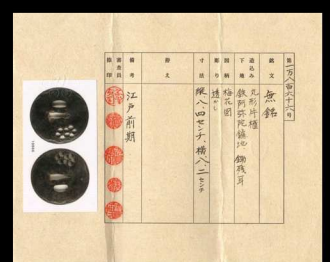 第一万八百六十六号
銘文
無銘
造込み
丸形片櫃
下地
鉄阿弥陀鑢地 鋤残耳
図柄
梅花図
彫り
透かし
寸法
縦八、四センチ、横八、二センチ
拵え
備考
江戸前期
審査員
検印